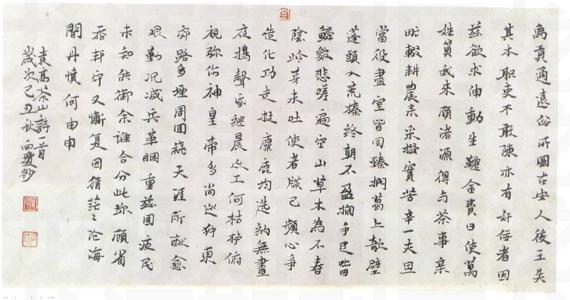 禹貢通遠俗所圖在安人後王失
其本職吏不敢陳亦有奸佞者因
茲欲求伸動生韆金費日使萬
姓貧我來顧渚源得與茶事親
氓輟耕農耒采掇實苦辛一夫旦
當役盡室皆同臻捫葛上欹壁
蓬頭入荒榛終朝不盈掬手足皆
鱗皴悲嗟遍空山草木為不春
陰嶺芽未吐使者牒已頻心爭
造化功走挺麋鹿均選納無晝
夜搗聲昏繼晨眾工何枯櫨俯
視彌傷神皇帝尚巡狩東
郊路多堙周回繞天涯所獻愈
艱勤況減兵革困重茲固疲民
未知供御餘誰合分此珍顧省
忝邦守又慚復因循茫々滄海
間丹憤何由申
袁高茶山詩一首
歲次己丑秋鈔